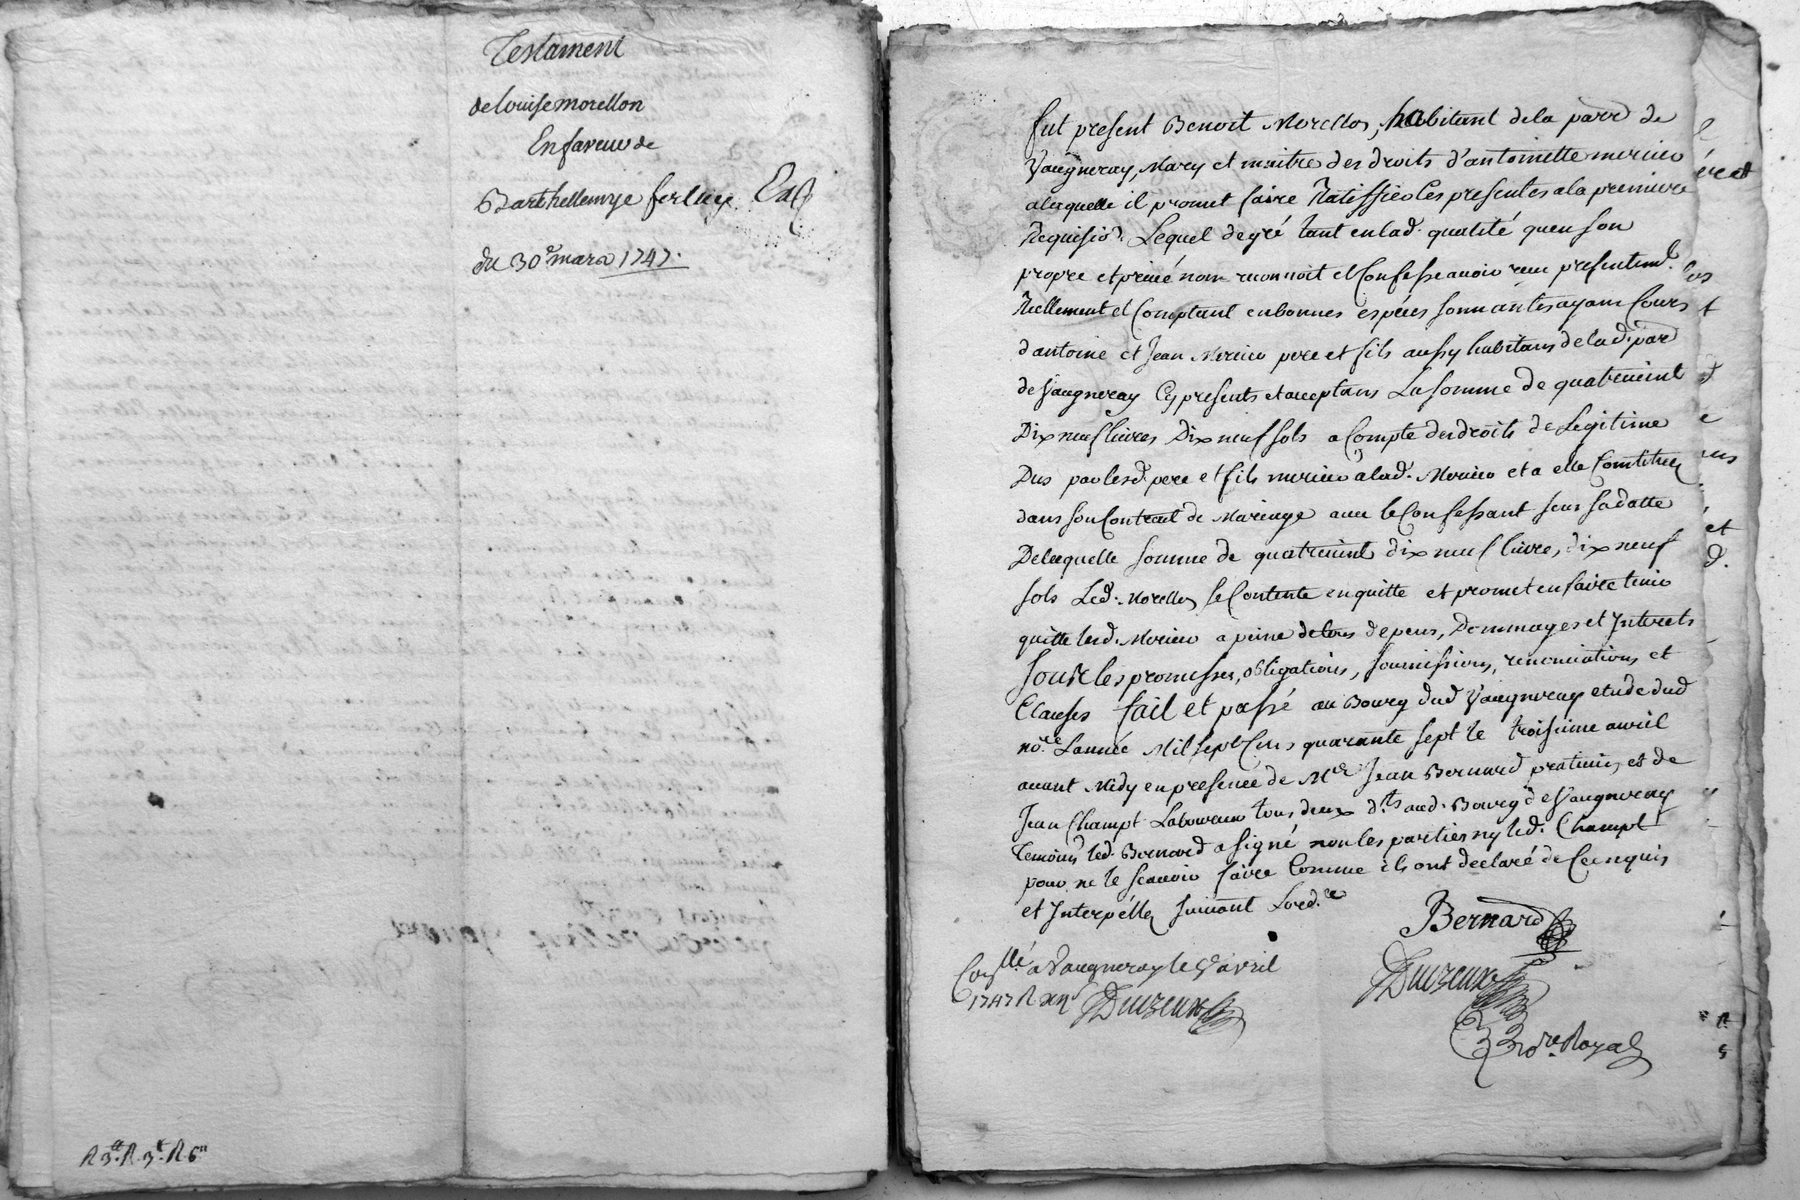 Testament
de louise morellon
En faveur de
Barthellemye ferlay
du 30e mars 1747.
R 3tt. R 3tt. R 6tt
fut present Benoit Morellon, habitant de la parr de
Vaugneray, Mary et maitre des droits d'antoinette mercier
a laquelle il promet faire Ratiffier les presentes a la premiere
Requision. Lequel de gré tant en lad. qualité qu'en son
propre et privé nom reconnoit et Confesse avoir reçu presentemt.
Reellement et Comptant en bonnes especes sonnantes ayant Cours
d'antoine et Jean Mercier pere et fils aussy habitans de lad. parr
de Vaugneray Cy presents et acceptans La somme de quatrecent
Dix neuf livres Dix neuf sols a Compte des droits de Legitime
Dus par lesd. pere et fils mercier à lad. Mercier et a elle Constitués
dans son Contrat de Mariage avec le Confessant sous sa datte
De laquelle somme de quatrecent dix neuf livres, dix neuf
sols Led. Morellon se Contente en quitte et promet en faire tenir
quitte lesd. Mercier a peine de tous depens, Dommages et Interets
sous les promesses, obligations, soumissions, renonciations, et
Clauses fait et passé au Bourg dud Vaugneray etude dud
nore. L'année Mil sept Cens quarante sept le troisieme avril
avant Midy en presence de Me Jean Bernard praticien, et de
Jean Champt Laboureur tous deux dts aud. Bourg de Vaugneray
temoins led. Bernard a signé non les parties ny led. Champt
pour ne le scavoir faire Comme ils ont declaré de Ce enquis
et Interpellés suivant Lord.ce
Bernard
Conllé a Vaugneray le 5e avril
1747 R
nore. Royal